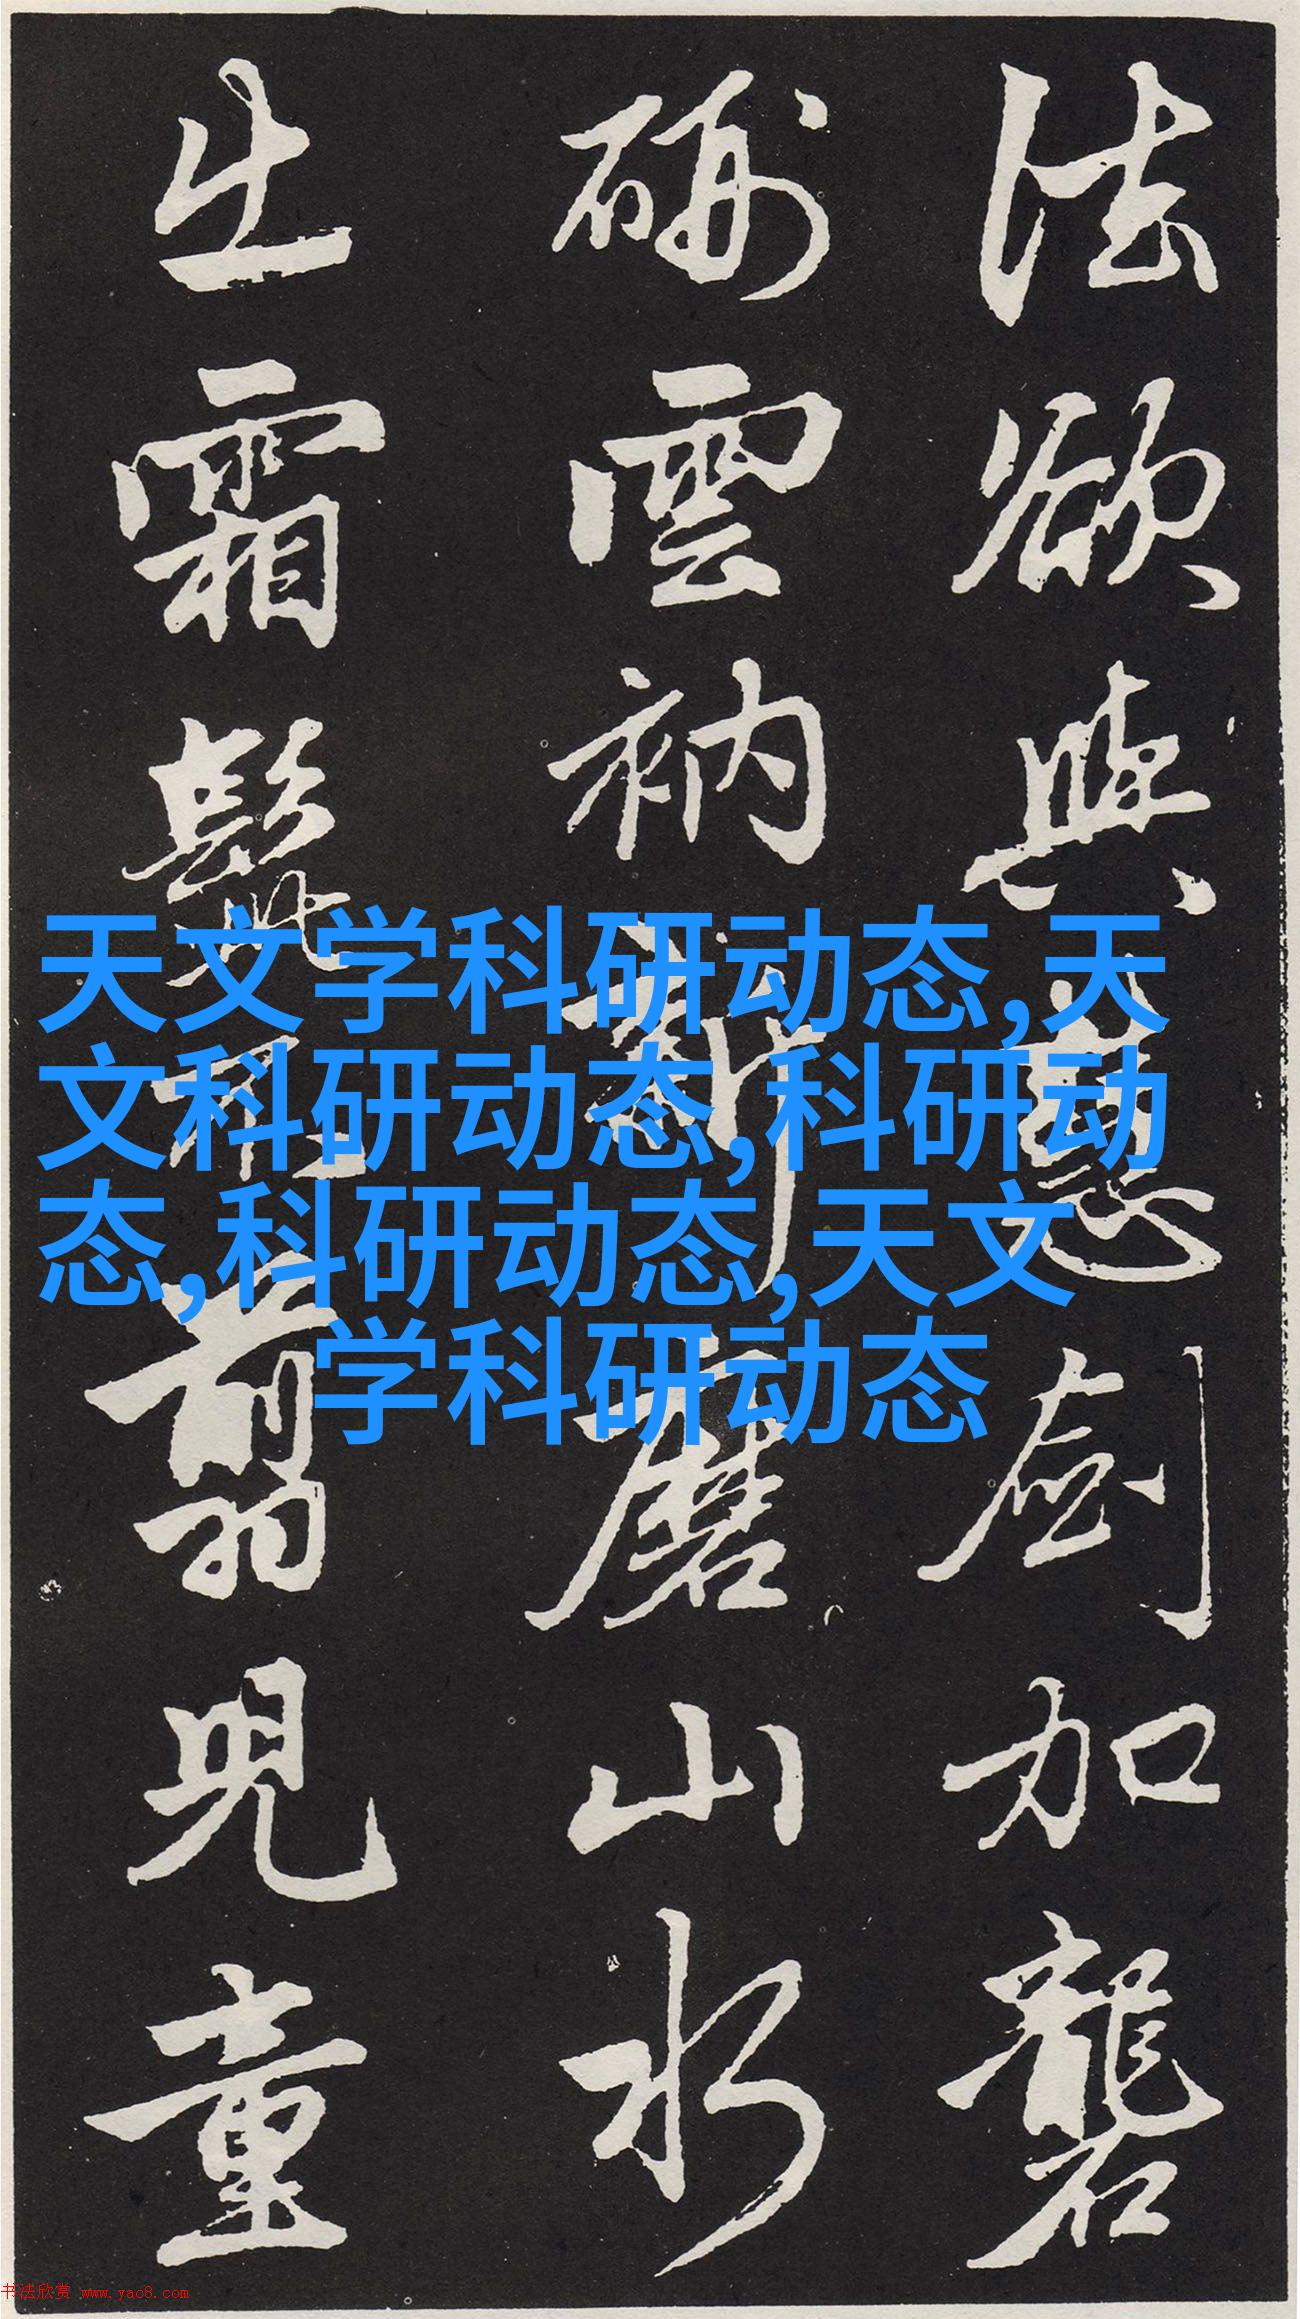 法欲與慧劍加礱
硎雲衲新磨山水
出霜髭不翦兒童
天文学科研动态,天
文科研动态,科研动
态,科研动态,天文
学科研动态
书法欣赏 www.yac8.com